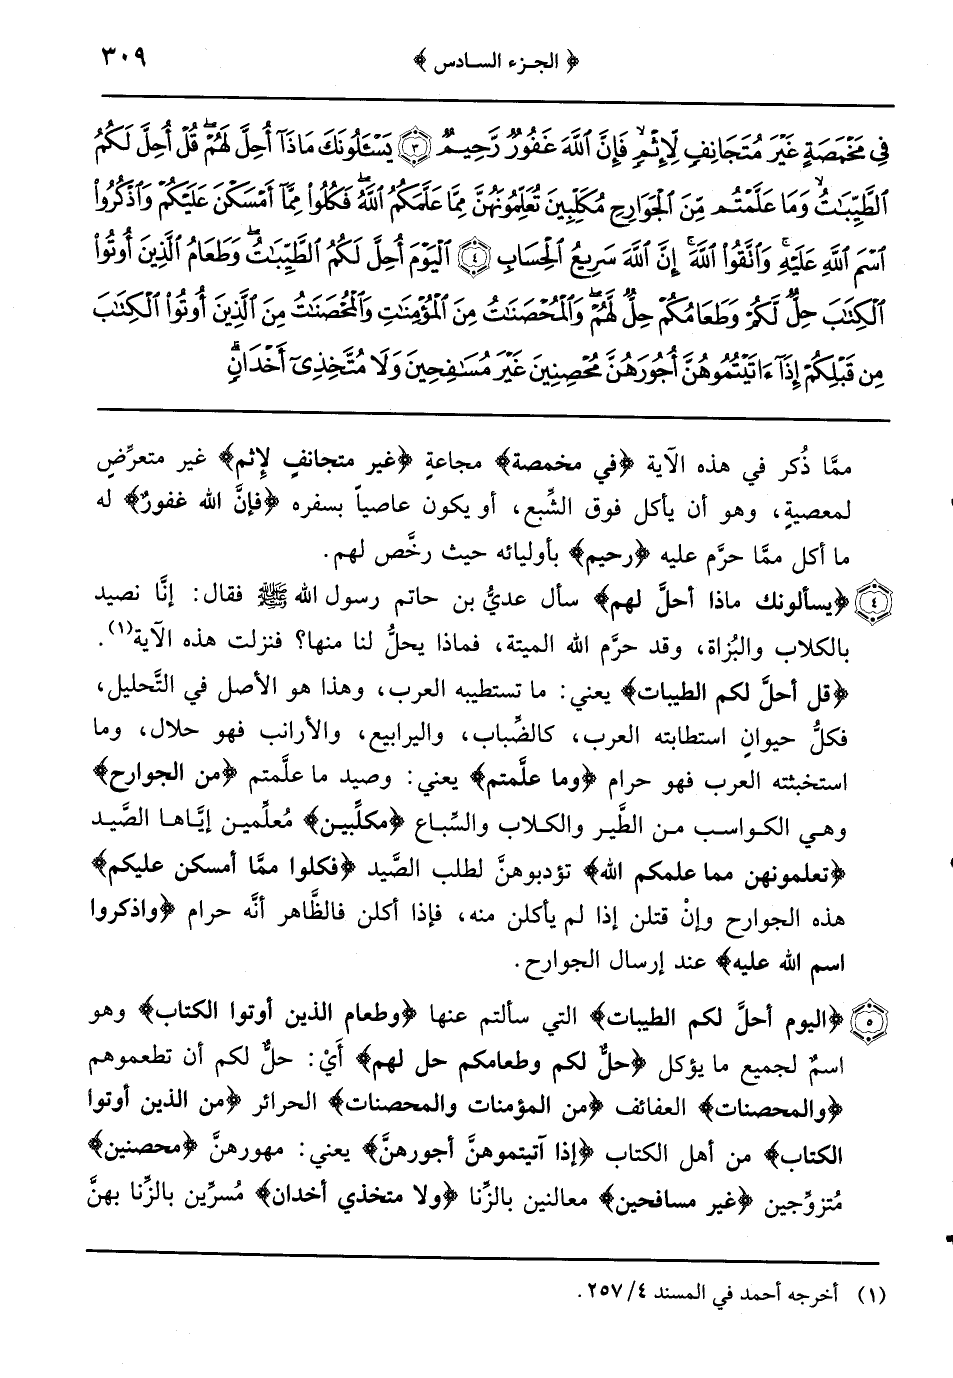 ﴿ الجـزء السـادس ﴾ ٣٠٩
فِي مَخْمَصَةٍ غَيْرَ مُتَجَانِفٍ لِإِثْمٍ فَإِنَّ اللَّهَ غَفُورٌ رَحِيمٌ ٣ يَسْـَٔلُونَكَ مَاذَآ أُحِلَّ لَهُمْ ۖ قُلْ أُحِلَّ لَكُمُ
الطَّيِّبَٰتُ ۙ وَمَا عَلَّمْتُم مِّنَ الْجَوَارِحِ مُكَلِّبِينَ تُعَلِّمُونَهُنَّ مِمَّا عَلَّمَكُمُ اللَّهُ ۖ فَكُلُوا مِمَّآ أَمْسَكْنَ عَلَيْكُمْ وَاذْكُرُوا
اسْمَ اللَّهِ عَلَيْهِ ۖ وَاتَّقُوا اللَّهَ ۚ إِنَّ اللَّهَ سَرِيعُ الْحِسَابِ ٤ الْيَوْمَ أُحِلَّ لَكُمُ الطَّيِّبَٰتُ ۖ وَطَعَامُ الَّذِينَ أُوتُوا
الْكِتَٰبَ حِلٌّ لَّكُمْ وَطَعَامُكُمْ حِلٌّ لَّهُمْ ۖ وَالْمُحْصَنَٰتُ مِنَ الْمُؤْمِنَٰتِ وَالْمُحْصَنَٰتُ مِنَ الَّذِينَ أُوتُوا الْكِتَٰبَ
مِن قَبْلِكُمْ إِذَآ ءَاتَيْتُمُوهُنَّ أُجُورَهُنَّ مُحْصِنِينَ غَيْرَ مُسَٰفِحِينَ وَلَا مُتَّخِذِىٓ أَخْدَانٍ ۗ
ممَّا ذُكر في هذه الآية ﴿في مخمصة﴾ مجاعةٍ ﴿غير متجانفٍ لإثم﴾ غير متعرِّضٍ
لمعصيةٍ، وهو أن يأكل فوق الشِّبع، أو يكون عاصياً بسفره ﴿فإنَّ الله غفورٌ﴾ له
ما أكل ممَّا حرَّم عليه ﴿رحيم﴾ بأوليائه حيث رخَّص لهم.
٤ ﴿يسألونك ماذا أحلَّ لهم﴾ سأل عديُّ بن حاتم رسول الله ﷺ فقال: إنَّا نصيد
بالكلاب والبُزاة، وقد حرَّم الله الميتة، فماذا يحلُّ لنا منها؟ فنزلت هذه الآية(١).
﴿قل أحلَّ لكم الطيبات﴾ يعني: ما تستطيبه العرب، وهذا هو الأصل في التَّحليل،
فكلُّ حيوانٍ استطابته العرب، كالضِّباب، واليرابيع، والأرانب فهو حلال، وما
استخبثته العرب فهو حرام ﴿وما علَّمتم﴾ يعني: وصيد ما علَّمتم ﴿من الجوارح﴾
وهـي الكـواسـب مـن الطَّيـر والكـلاب والسِّباع ﴿مكلِّبين﴾ مُعلِّمين إيَّاهـا الصَّيـد
﴿تعلمونهن مما علمكم الله﴾ تؤدبوهنَّ لطلب الصَّيد ﴿فكلوا ممَّا أمسكن عليكم﴾
هذه الجوارح وإنْ قتلن إذا لم يأكلن منه، فإذا أكلن فالظَّاهر أنَّه حرام ﴿واذكروا
اسم الله عليه﴾ عند إرسال الجوارح.
٥ ﴿اليوم أحلَّ لكم الطيبات﴾ التي سألتم عنها ﴿وطعام الذين أوتوا الكتاب﴾ وهو
اسمٌ لجميع ما يؤكل ﴿حلٌّ لكم وطعامكم حل لهم﴾ أَيْ: حلٌّ لكم أن تطعموهم
﴿والمحصنات﴾ العفائف ﴿من المؤمنات والمحصنات﴾ الحرائر ﴿من الذين أوتوا
الكتاب﴾ من أهل الكتاب ﴿إذا آتيتموهنَّ أجورهنَّ﴾ يعني: مهورهنَّ ﴿محصنين﴾
مُتزوِّجين ﴿غير مسافحين﴾ معالنين بالزِّنا ﴿ولا متخذي أخدان﴾ مُسرِّين بالزِّنا بهنَّ
(١) أخرجه أحمد في المسند ٢٥٧/٤.